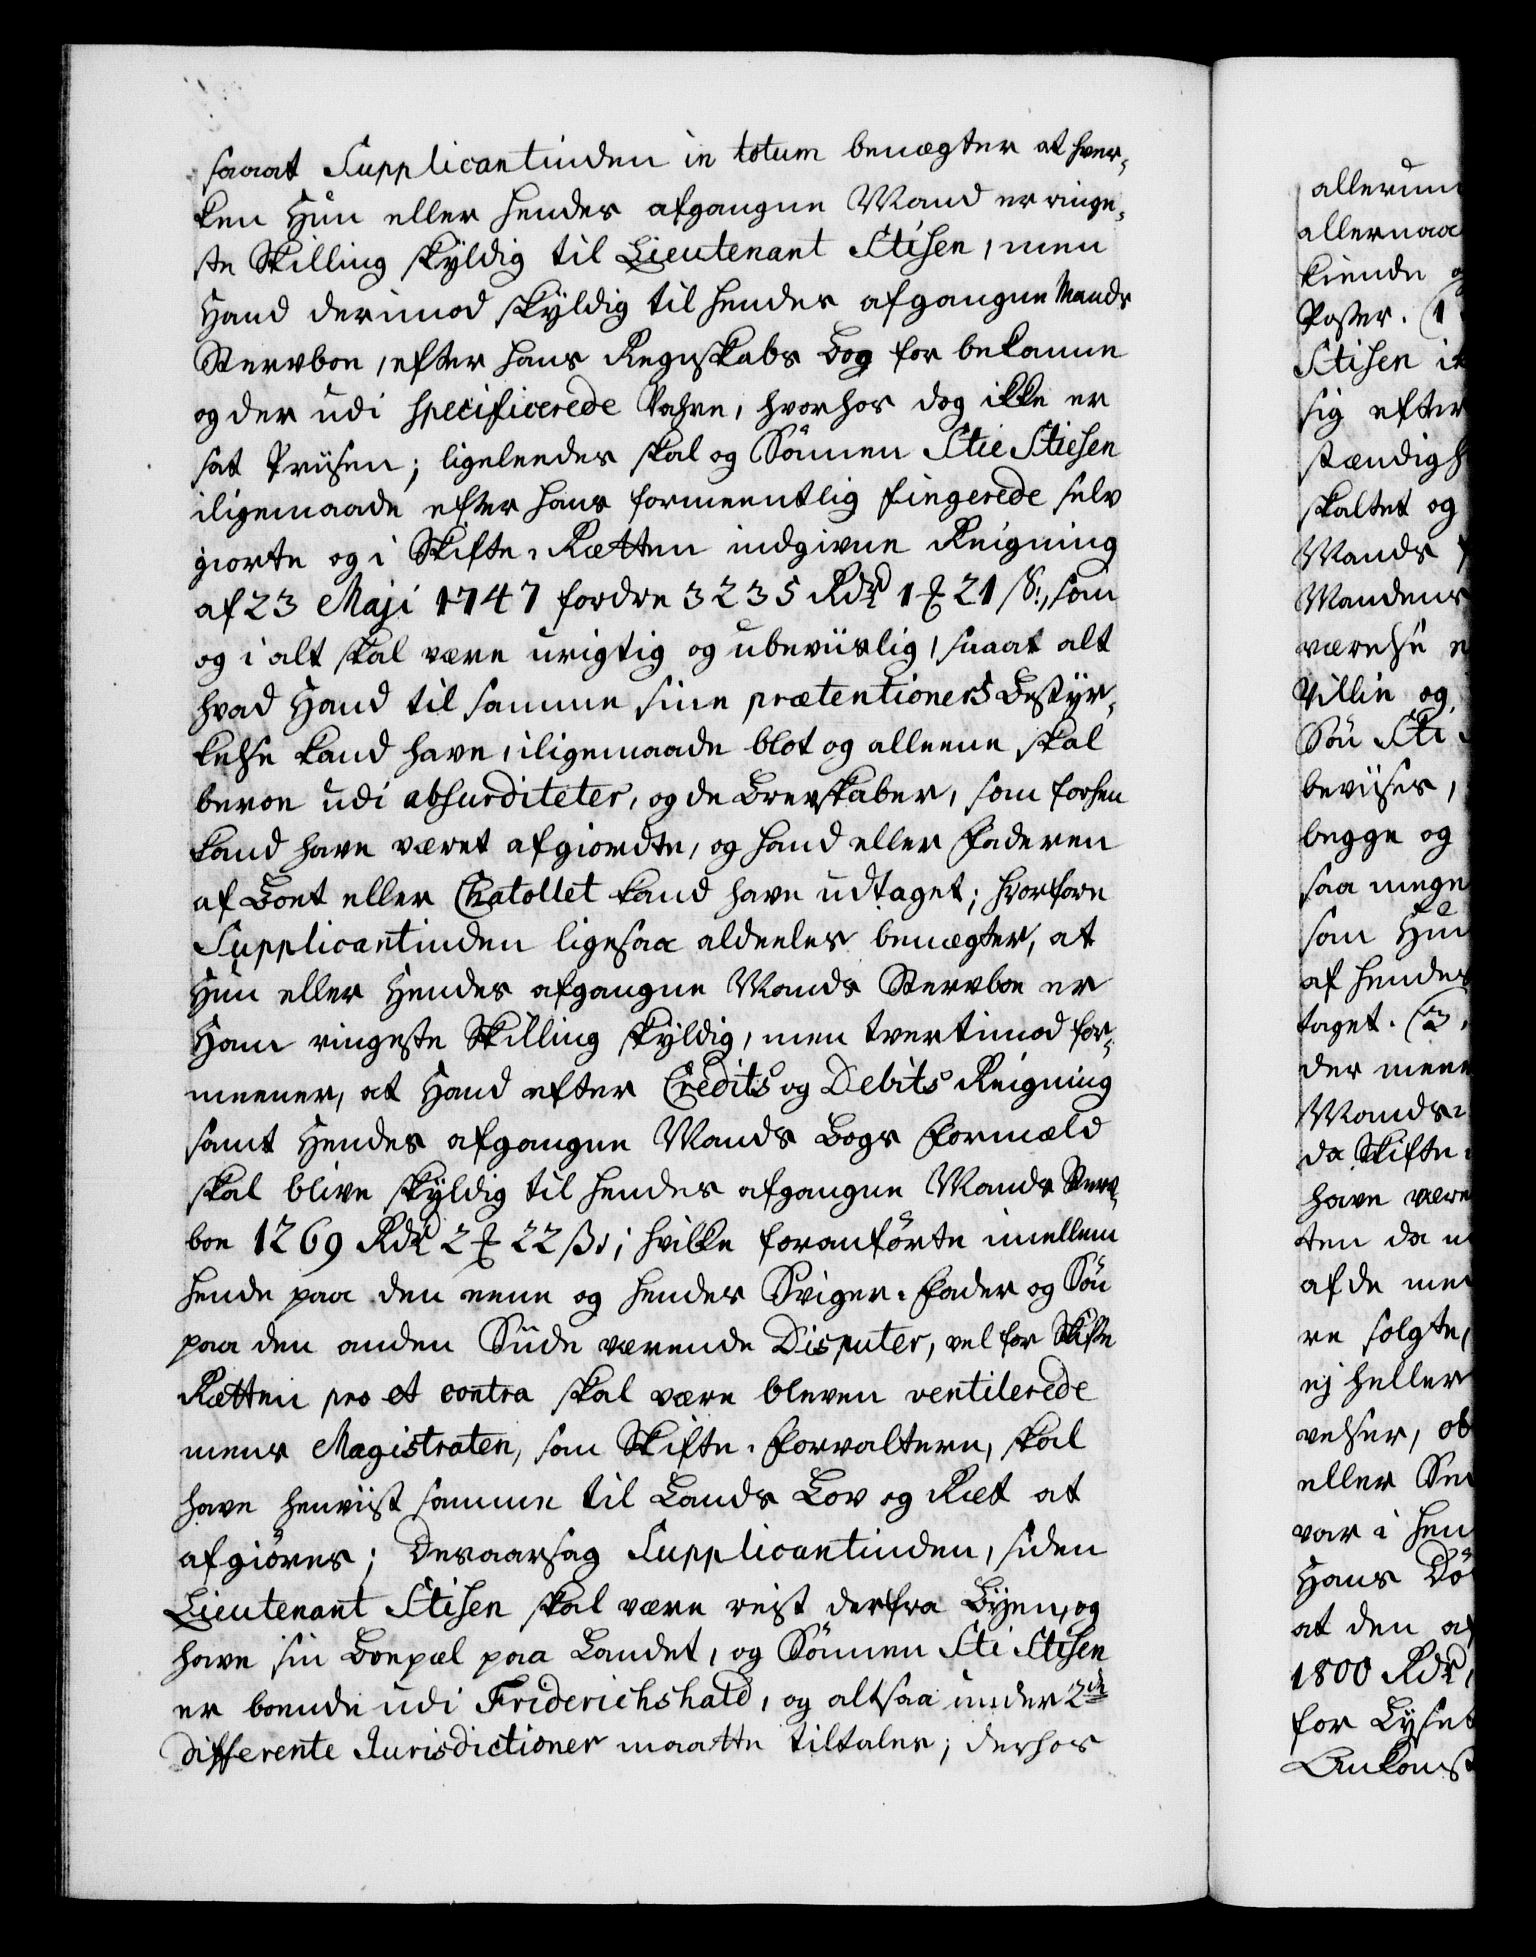 saaat Supplicantinden in totum benægter at hver-
ken Hun eller hendes afgangne Mand er ringe-
ste Skilling skyldig til Lieutenant Stisen, men
Hand derimod skyldig til hendes afgangne Mands
Stervboe, efter hans Regnskabs Bog for bekomne
og der udi specificerede Vahre, hvorhos dog ikke er
sat Priisen; ligeleedes skal og Sönnen Stie Stiesen
iligemaade efter hans formeentlig fingerede selv
giorte og i Skifte-Retten indgivne Reigning
af 23 Maji 1747 fordre 3235 Rdr 1 ꝶ 21 s., som
og i alt skal være urigtig og ubeviislig, saaat alt
hvad Hand til samme sine prætentioners Bestyr-
kelse kand have, iligemaade blot og alleene skal
beroe udi absurditeter, og de Brevskaber, som forhen
kand have været afgiordte, og hand eller Faderen
af Boet eller Chatollet kand have udtaget; hvorfore
Supplicantinden ligesaa aldeeles benægter, at
Hun eller Hendes afgangne Mands Stervboe er
Ham ringeste Skilling skyldig, men tvertimod for-
meener, at Hand efter Credits og Debits Reigning
samt Hendes afgangne Mands Bogs Formæld
skal blive skyldig til hendes afgangne Mands Sterv-
boe 1269 Rdr 2 ꝶ 22 ß; hvilke foranförte imellem
hende paa den eene og hendes Sviger-Fader og Sön
paa den anden Siide værende Disputer, vel for Skifte
Retten pro et contra skal være bleven ventilerede
mens Magistraten, som Skifte-Forvaltere, skal
have henviist samme til Lands Lov og Ret at
afgiöres; Desaarsag Supplicantinden, siden
Lieutenant Stisen skal være reist derfra Byen, og
have sin Boepæl paa Landet, og Sönnen Sti Stisen
er boende udi Friderichshald, og altsaa under 2de
differente Jurisdictioner maatte tiltales; derhos
allerun
allernaa
kiende
Poster. (1
Stisen
sig efter
stændigh
skaltet og
Mands
Mandens
værelse
Villie og
Sön Sti
beviises,
begge og
saa mege
som Hun
af hendes
taget. (3,
der meen
Mands-
da Skifte-
have være
ten da
af de me
re solgte,
ej heller
velser,
eller
var i hen
Hans Dö
at den
1800 Rdr,
for Lyset
Ankomst